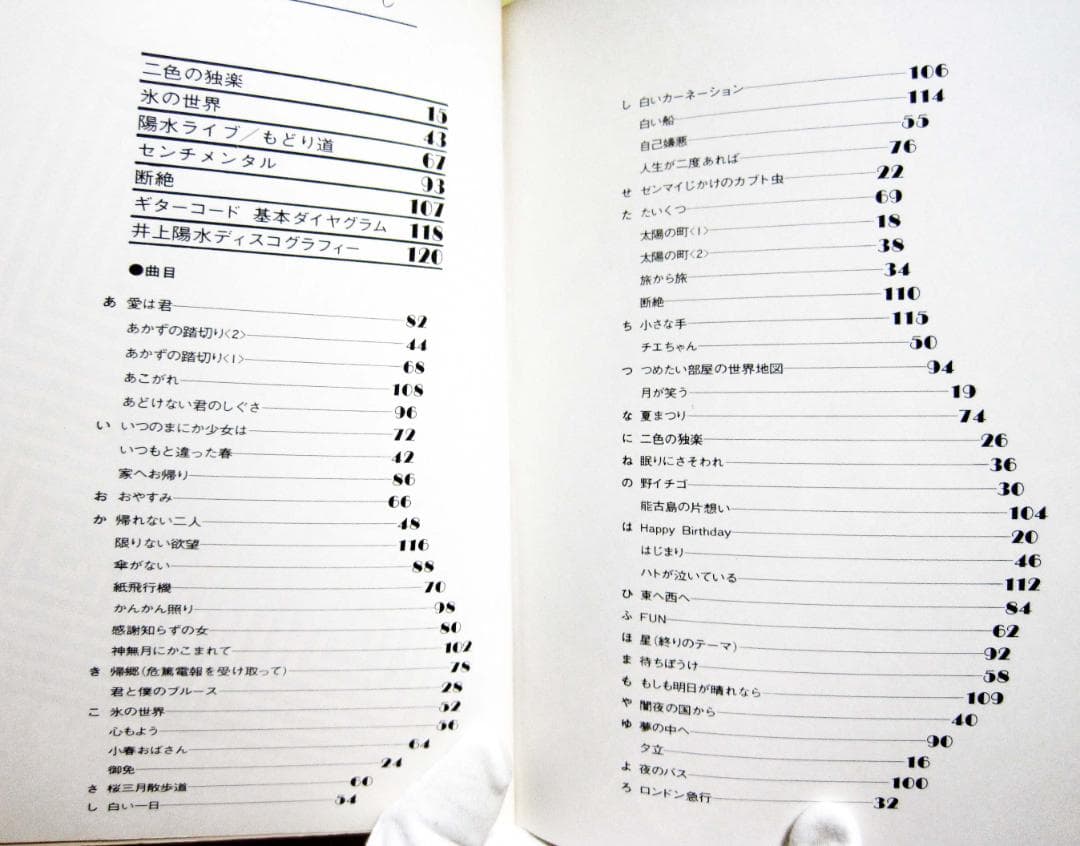 し
二色の独楽 15
氷の世界 43
陽水ライブ/もどり道 67
センチメンタル 93
断絶 107
ギターコード 基本ダイヤグラム 118
井上陽水ディスコグラフィー 120
●曲目
あ 愛は君 82
あかずの踏切り〈2〉 44
あかずの踏切り〈1〉 68
あこがれ 108
あどけない君のしぐさ 96
い いつのまにか少女は 72
いつもと違った春 42
家へお帰り 86
お おやすみ 66
か 帰れない二人 48
限りない欲望 116
傘がない 88
紙飛行機 70
かんかん照り 98
感謝知らずの女 80
神無月にかこまれて 102
き 帰郷(危篤電報を受け取って) 78
君と僕のブルース 28
こ 氷の世界 52
心もよう 56
小春おばさん 64
御免 24
さ 桜三月散歩道 60
し 白い一日 54
し 白いカーネーション 106
白い船 114
自己嫌悪 55
人生が二度あれば 76
せ センマイじかけのカブト虫 22
た たいくつ 69
太陽の町〈1〉 18
太陽の町〈2〉 38
旅から旅 34
断絶 110
ち 小さな手 115
チエちゃん 50
つ つめたい部屋の世界地図 94
月が笑う 19
な 夏まつり 74
に 二色の独楽 26
ね 眠りにさそわれ 36
の 野イチゴ 30
能古島の片想い 104
は Happy Birthday 20
はじまり 46
ハトが泣いている 112
ひ 東へ西へ 84
ふ FUN 62
ほ 星(終りのテーマ) 92
ま 待ちぼうけ 58
も もしも明日が晴れなら 109
や 闇夜の国から 40
ゆ 夢の中へ 90
夕立 16
よ 夜のバス 100
ろ ロンドン急行 32